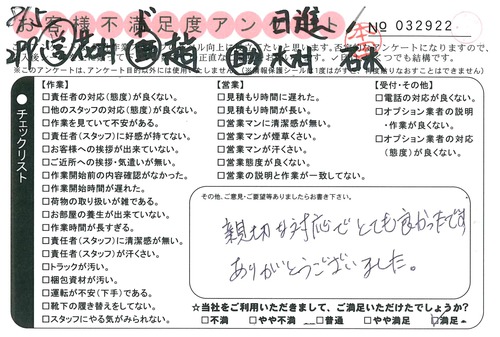 お客様不満足度アンケート
日進
No 032922
チェックリスト
【作業】
□責任者の対応(態度)が良くない。
□他のスタッフの対応(態度)が良くない。
□作業を見ていて不安がある。
□責任者(スタッフ)に好感が持てない。
□お客様への挨拶が出来ていない。
□ご近所への挨拶・気遣いが無い。
□作業開始前の内容確認がなかった。
□作業開始時間が遅れた。
□荷物の取り扱いが雑である。
□お部屋の養生が出来ていない。
□作業時間が長すぎる。
□責任者(スタッフ)に清潔感が無い。
□責任者(スタッフ)が汗くさい。
□トラックが汚い。
□梱包資材が汚い。
□運転が不安(下手)である。
□靴下の履き替えをしてない。
□スタッフにやる気がみられない。
【営業】
□見積もり時間に遅れた。
□見積もり時間が長い。
□営業マンに清潔感が無い。
□営業マンが煙草くさい。
□営業マンが汗くさい。
□営業態度が良くない。
□営業の説明と作業が一致してない。
【受付・その他】
□電話の対応が良くない。
□オプション業者の説明
・作業が良くない。
□オプション業者の対応
(態度)が良くない。
その他、ご意見・ご要望等ありましたらお書き下さい。
親切な対応でとても良かったです
ありがとうございました。
☆当社をご利用いただきまして、ご満足いただけたでしょうか?
□不満 □やや不満 □普通 □やや満足 □満足